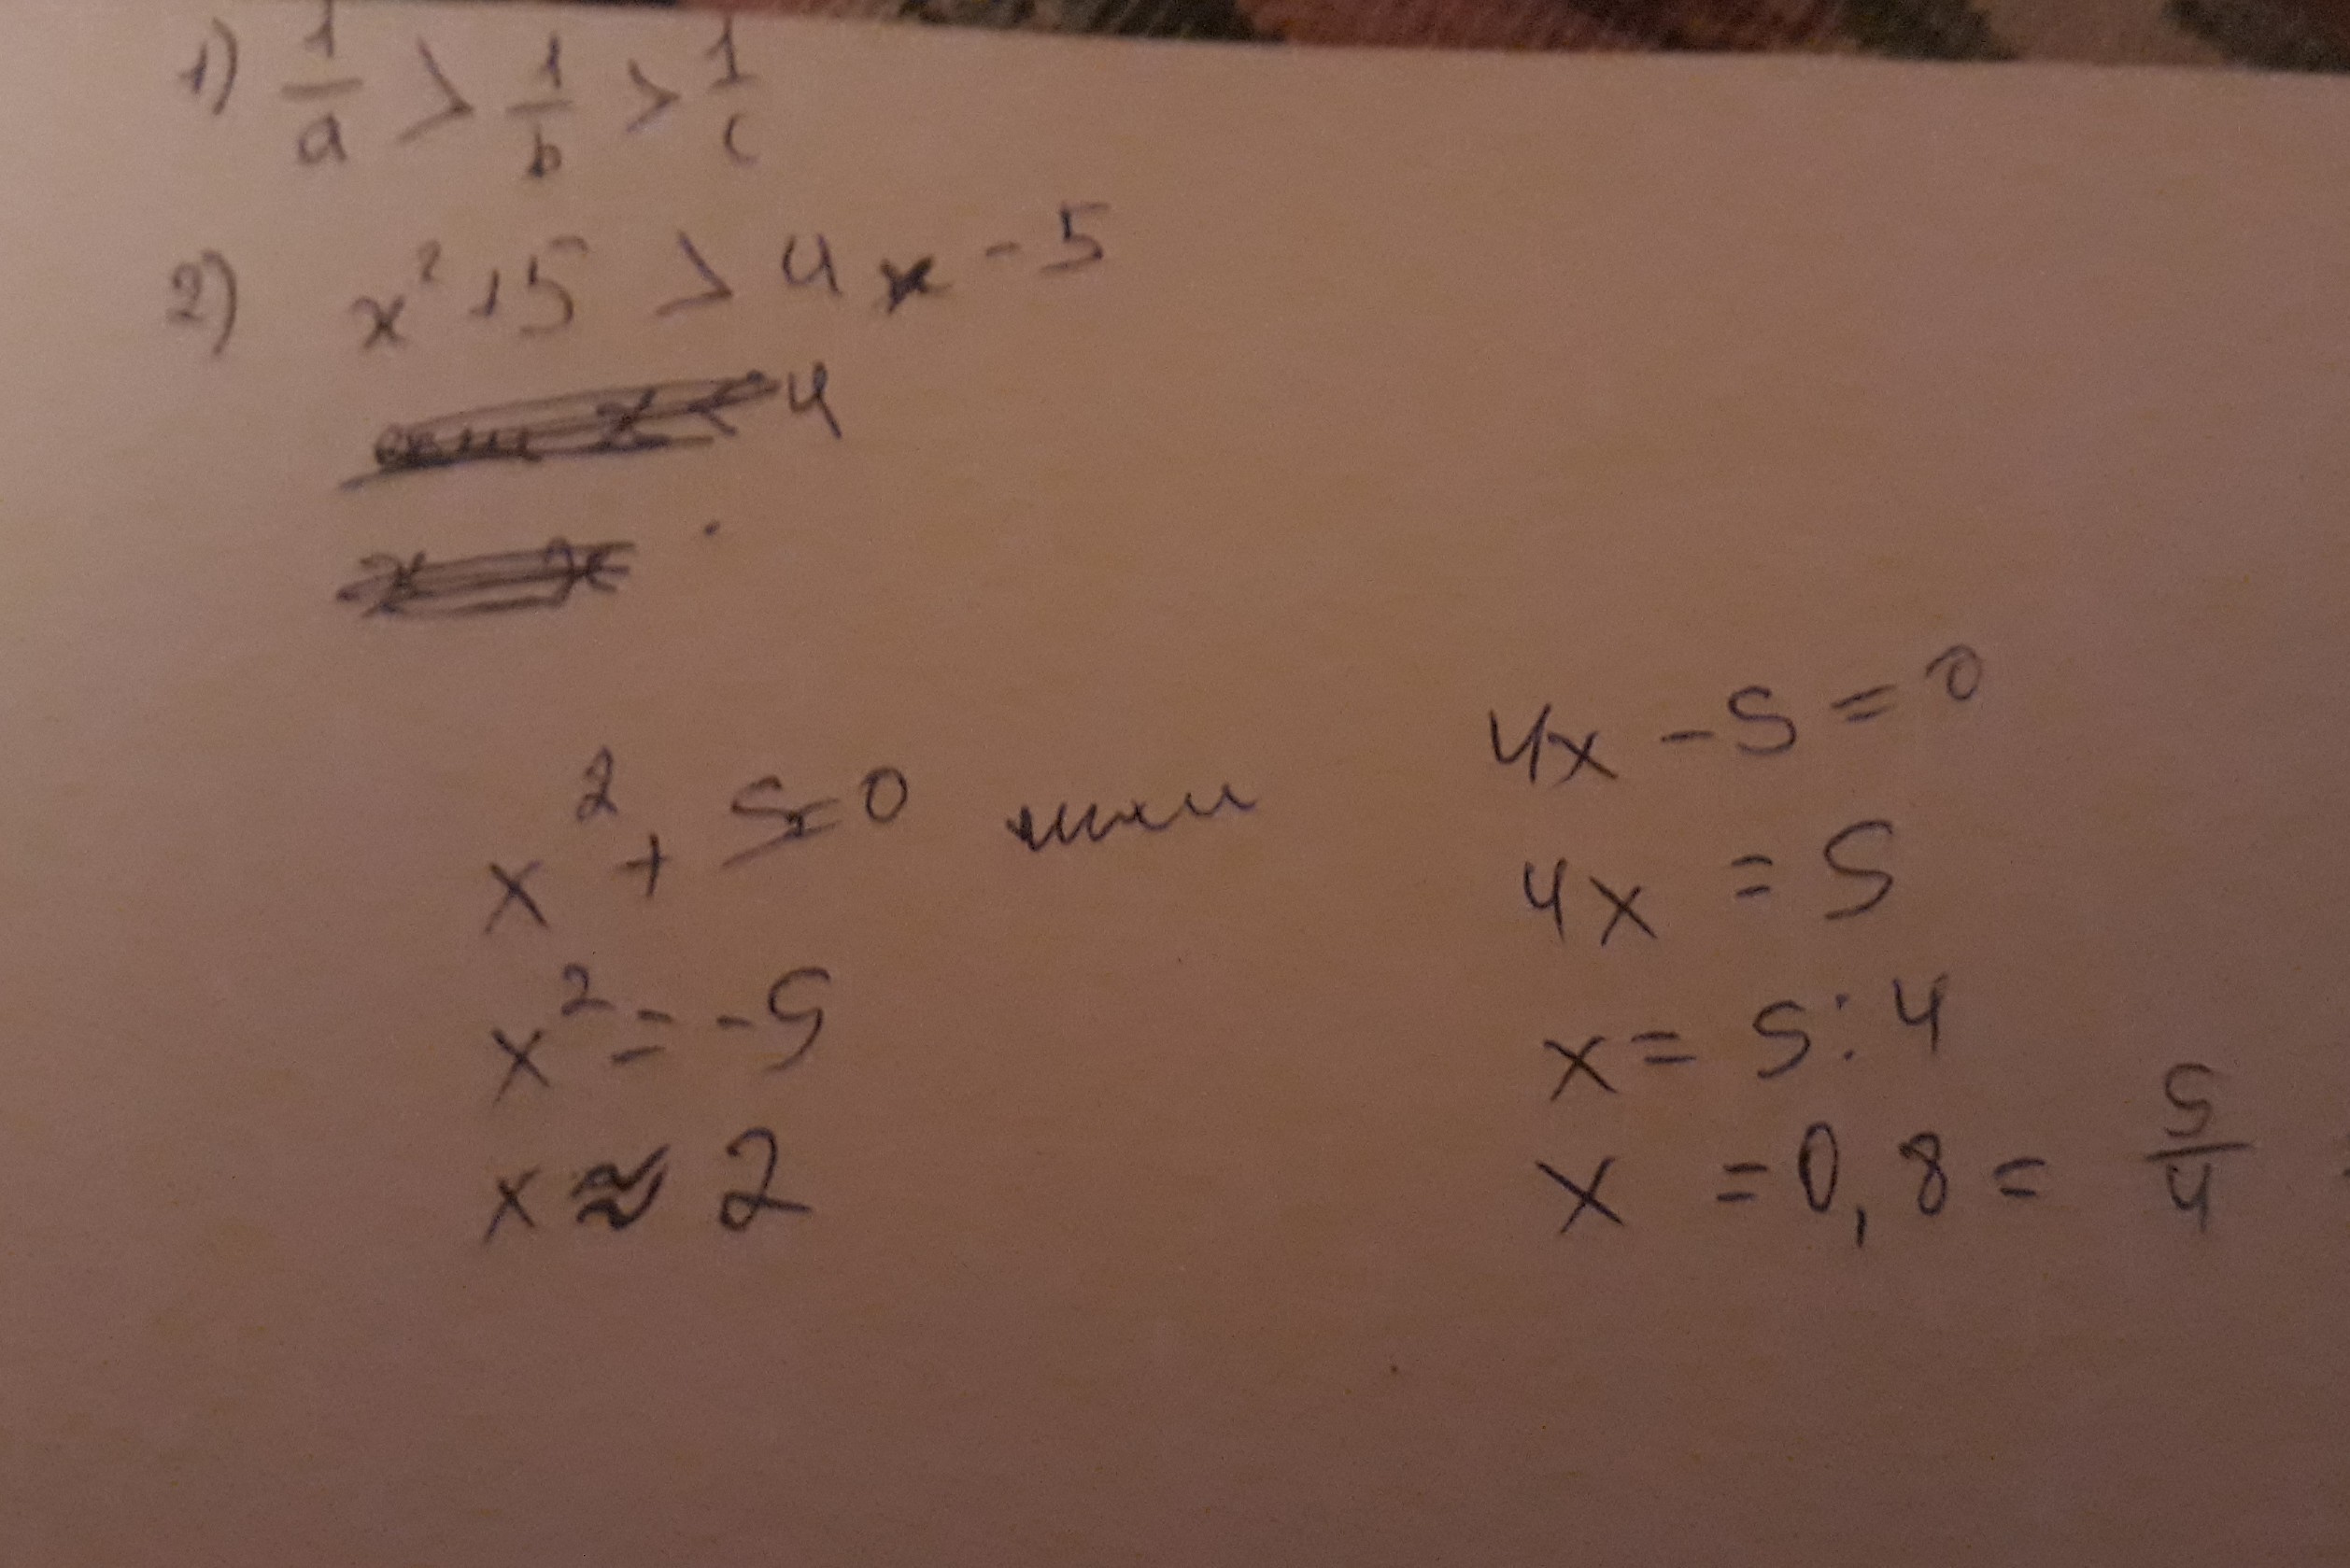 1) 1/a > 1/b > 1/c
2) x² + 5 > 4x - 5
4
x² + 5 = 0 или
x² = -5
x ≈ 2
4x - 5 = 0
4x = 5
x = 5 : 4
x = 0,8 = 5/4